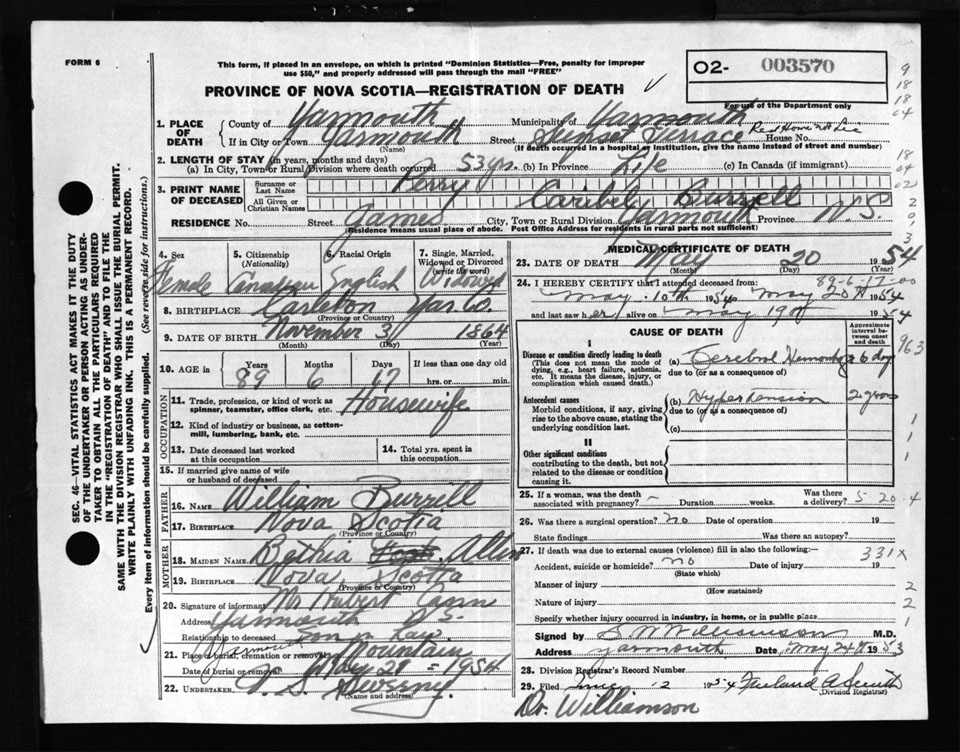 FORM 6
This form, if placed in an envelope, on which is printed "Dominion Statistics—Free, penalty for improper
use $50," and properly addressed will pass through the mail "FREE"
O2- 003570
For use of the Department only
PROVINCE OF NOVA SCOTIA—REGISTRATION OF DEATH
1. PLACE OF DEATH
County of Yarmouth Municipality of Yarmouth
If in City or Town Yarmouth Street Sunset Terrace House No.
(Name) (If death occurred in a hospital or institution, give the name instead of street and number)
2. LENGTH OF STAY (in years, months and days)
(a) In City, Town or Rural Division where death occurred 53 yrs. (b) In Province Life (c) In Canada (if immigrant)
3. PRINT NAME OF DECEASED
Surname or Last Name Perry
All Given or Christian Names Caribel Burrell
RESIDENCE No. Street James City, Town or Rural Division Yarmouth Province N.S.
(Residence means usual place of abode. Post Office Address for residents in rural parts not sufficient)
4. Sex Female
5. Citizenship (Nationality) Canadian
6. Racial Origin English
7. Single, Married, Widowed or Divorced (write the word) Widowed
8. BIRTHPLACE Carleton Yar. Co.
(Province or Country)
9. DATE OF BIRTH November 3 1864
(Month) (Day) (Year)
10. AGE in Years 89 Months 6 Days 17 If less than one day old hrs. or min.
OCCUPATION
11. Trade, profession, or kind of work as spinner, teamster, office clerk, etc. Housewife
12. Kind of industry or business, as cotton-mill, lumbering, bank, etc.
13. Date deceased last worked at this occupation
14. Total yrs. spent in this occupation
15. If married give name of wife or husband of deceased
FATHER
16. NAME William Burrill
17. BIRTHPLACE Nova Scotia
(Province or Country)
MOTHER
18. MAIDEN NAME Bethia Allen
19. BIRTHPLACE Nova Scotia
(Province or Country)
20. Signature of informant Mr Hubert Cann
Address Yarmouth N.S.
Relationship to deceased son in Law
21. Place of burial, cremation or removal Yarmouth Mountain
Date of burial or removal May 21 - 1954
22. UNDERTAKER V. S. Sweeny
(Name and address)
MEDICAL CERTIFICATE OF DEATH
23. DATE OF DEATH May 20 1954
(Month) (Day) (Year)
89-6-17-00
24. I HEREBY CERTIFY that I attended deceased from:
May 10th 1954 to May 20th 1954
and last saw her alive on May 19th 1954
CAUSE OF DEATH
Approximate interval between onset and death
I
Disease or condition directly leading to death
(This does not mean the mode of dying, e.g., heart failure, asthenia, etc. It means the disease, injury, or complication which caused death.)
(a) Cerebral Hemorrhage 6 days
due to (or as a consequence of)
Antecedent causes
Morbid conditions, if any, giving rise to the above cause, stating the underlying condition last.
(b) Hypertension 2 years
due to (or as a consequence of)
(c)
II
Other significant conditions
contributing to the death, but not related to the disease or condition causing it.
25. If a woman, was the death associated with pregnancy? - Duration weeks. Was there a delivery? 5-20-4
26. Was there a surgical operation? no Date of operation 19
State findings Was there an autopsy?
27. If death was due to external causes (violence) fill in also the following:— 331X
Accident, suicide or homicide? no Date of injury 19
(State which)
Manner of injury
(How sustained)
Nature of injury
Specify whether injury occurred in industry, in home, or in public place
Signed by B M Williamson M.D.
Address Yarmouth Date May 24th 1953
28. Division Registrar's Record Number
29. Filed June 12 1954
(Division Registrar)
Dr. Williamson
SEC. 46—VITAL STATISTICS ACT MAKES IT THE DUTY
OF THE UNDERTAKER OR PERSON ACTING AS UNDER-
TAKER TO OBTAIN ALL THE PARTICULARS REQUIRED
IN THE "REGISTRATION OF DEATH" AND TO FILE THE
SAME WITH THE DIVISION REGISTRAR WHO SHALL ISSUE THE BURIAL PERMIT.
WRITE PLAINLY WITH UNFADING INK. THIS IS A PERMANENT RECORD.
Every item of information should be carefully supplied. (See reverse side for instructions.)
9
18
18
04
18
04
02
2
0
1
3
963
1
1
1
2
2
1